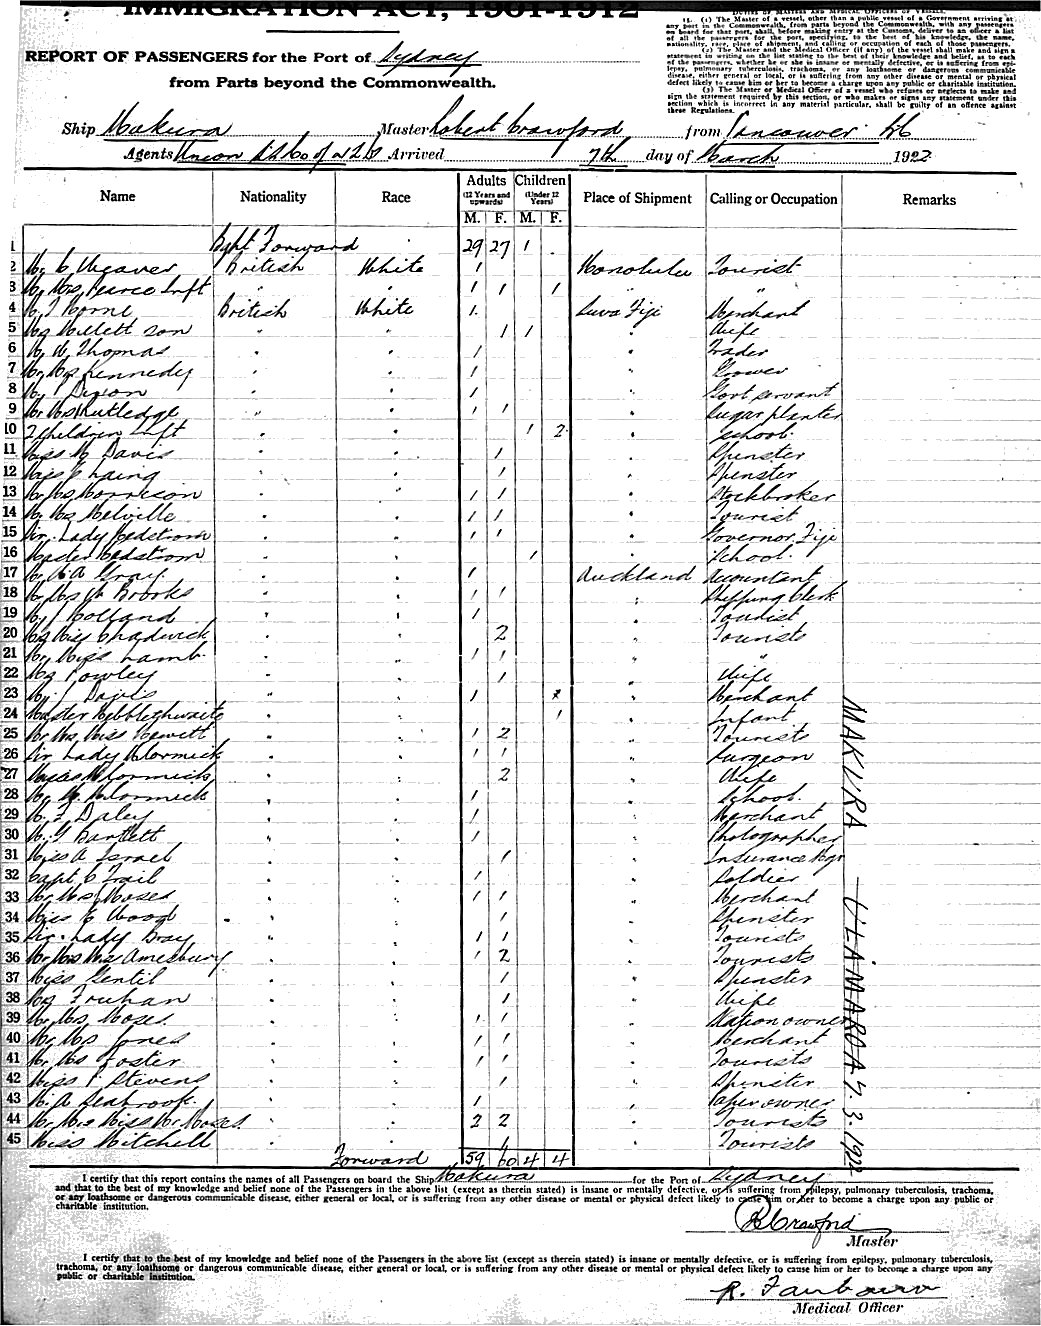 IMMIGRATION ACT, 1901-1912
REPORT OF PASSENGERS for the Port of Sydney
from Parts beyond the Commonwealth.
DUTIES OF MASTERS AND MEDICAL OFFICERS OF VESSELS.
15. (1) The Master of a vessel, other than a public vessel of a Government arriving at
any port in the Commonwealth, from parts beyond the Commonwealth, with any passengers
on board for that port, shall, before making entry at the Customs, deliver to an officer a list
of all the passengers for the port, specifying, to the best of his knowledge, the name,
nationality, race, place of shipment, and calling or occupation of each of those passengers.
(2) The Master and the Medical Officer (if any) of the vessel shall make and sign a
statement in writing on the list stating to the best of their knowledge and belief, as to each
of the passengers, whether he or she is insane or mentally defective, or is suffering from epi-
lepsy, pulmonary tuberculosis, trachoma, or any loathsome or dangerous communicable
disease, either general or local, or is suffering from any other disease or mental or physical
defect likely to cause him or her to become a charge upon any public or charitable institution.
(3) The Master or Medical Officer of a vessel who refuses or neglects to make and
sign the statement required by this section, or who makes or signs any statement under this
section which is incorrect in any material particular, shall be guilty of an offence against
these Regulations.
Ship Makura Master Robert Crawford from Vancouver
Agents Union Arrived 7th day of March 1922
Name Nationality Race Adults (12 Years and upwards) Children (Under 12 Years) Place of Shipment Calling or Occupation Remarks
M. F. M. F.
1 Bght Forward 29 27 1
2 Mr C Weaver British White 1 Honolulu Tourist
3 Mr Mrs Pearce Inft " " 1 1 1 "
4 Mr J Horne British White 1 Suva Fiji Merchant
5 Mrs Millett son " " 1 1 " Wife
6 Mr W Thomas " " 1 " Trader
7 Mr Kennedy " " 1 " Grower
8 Mr Dixon " " 1 " Govt servant
9 Mr Mrs Rutledge " " 1 1 " Sugar planter
10 2 Children Inft " " 1 2 " School
11 Miss M Davis " " 1 " Spinster
12 Miss Laing " " 1 " Spinster
13 Mr Mrs Morrison " " 1 1 " Stockbroker
14 Mr Mrs Melville " " 1 1 " Tourist
15 Sir Lady Hedstrom " " 1 1 " Governor Fiji
16 Master Hedstrom " " 1 " School
17 Mr A Gray " " 1 Auckland Accountant
18 Mr Mrs Brooks " " 1 1 " Shipping Clerk
19 Mr J Holland " " 1 " Tourist
20 Mrs Miss Chadwick " " 2 " Tourists
21 Mr Miss Lamb " " 1 1 " "
22 Mrs Powley " " 1 " Wife
23 Mr J Davis " " 1 " Merchant
24 Master Hebblethwaite " " 1 " Infant
25 Mr Mrs Miss Hewett " " 1 2 " Tourists
26 Sir Lady McCormick " " 1 1 " Surgeon
27 Misses McCormick " " 2 " Wife
28 Mr McCormick " " 1 " School
29 Mr F Daley " " 1 " Merchant
30 Mr G Bartlett " " 1 " Photographer
31 Miss A Israel " " 1 " Insurance Mgr
32 Capt C Trail " " 1 " Soldier
33 Mr Mrs Moses " " 1 1 " Merchant
34 Miss E Wood " " 1 " Spinster
35 Sir Lady Bray " " 1 1 " Tourists
36 Mr Mrs Miss Amesbury " " 1 2 " Tourists
37 Miss Gentil " " 1 " Spinster
38 Mrs Fouhan " " 1 " Wife
39 Mr Mrs Moses " " 1 1 " Station owner
40 Mr Mrs Jones " " 1 1 " Merchant
41 Mr Mrs Foster " " 1 1 " Tourists
42 Miss Stevens " " 1 " Spinster
43 Mr A Seabrook " " 1 " owner
44 Mr Mrs Miss Mr Moses " " 2 2 " Tourists
45 Miss Mitchell 1 Tourists
Forward 59 60 4 4
MAKURA 7.3.1922
I certify that this report contains the names of all Passengers on board the Ship Makura for the Port of Sydney
and that to the best of my knowledge and belief none of the Passengers in the above list (except as therein stated) is insane or mentally defective, or is suffering from epilepsy, pulmonary tuberculosis, trachoma,
or any loathsome or dangerous communicable disease, either general or local, or is suffering from any other disease or mental or physical defect likely to cause him or her to become a charge upon any public or
charitable institution.
R Crawford
Master
I certify that to the best of my knowledge and belief none of the Passengers in the above list (except as therein stated) is insane or mentally defective, or is suffering from epilepsy, pulmonary tuberculosis,
trachoma, or any loathsome or dangerous communicable disease, either general or local, or is suffering from any other disease or mental or physical defect likely to cause him or her to become a charge upon any
public or charitable institution.
R.
Medical Officer